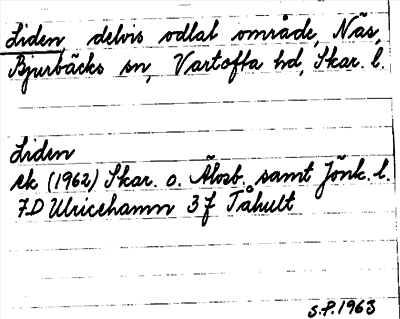 Liden, delvis odlat område, Näs,
Bjurbäcks sn, Vartofta hd, Skar. l.
Liden
ek (1962) Skar. o. Älvsb. samt Jönk. l.
7D Ulricehamn 3 f Tåhult
S.P. 1963